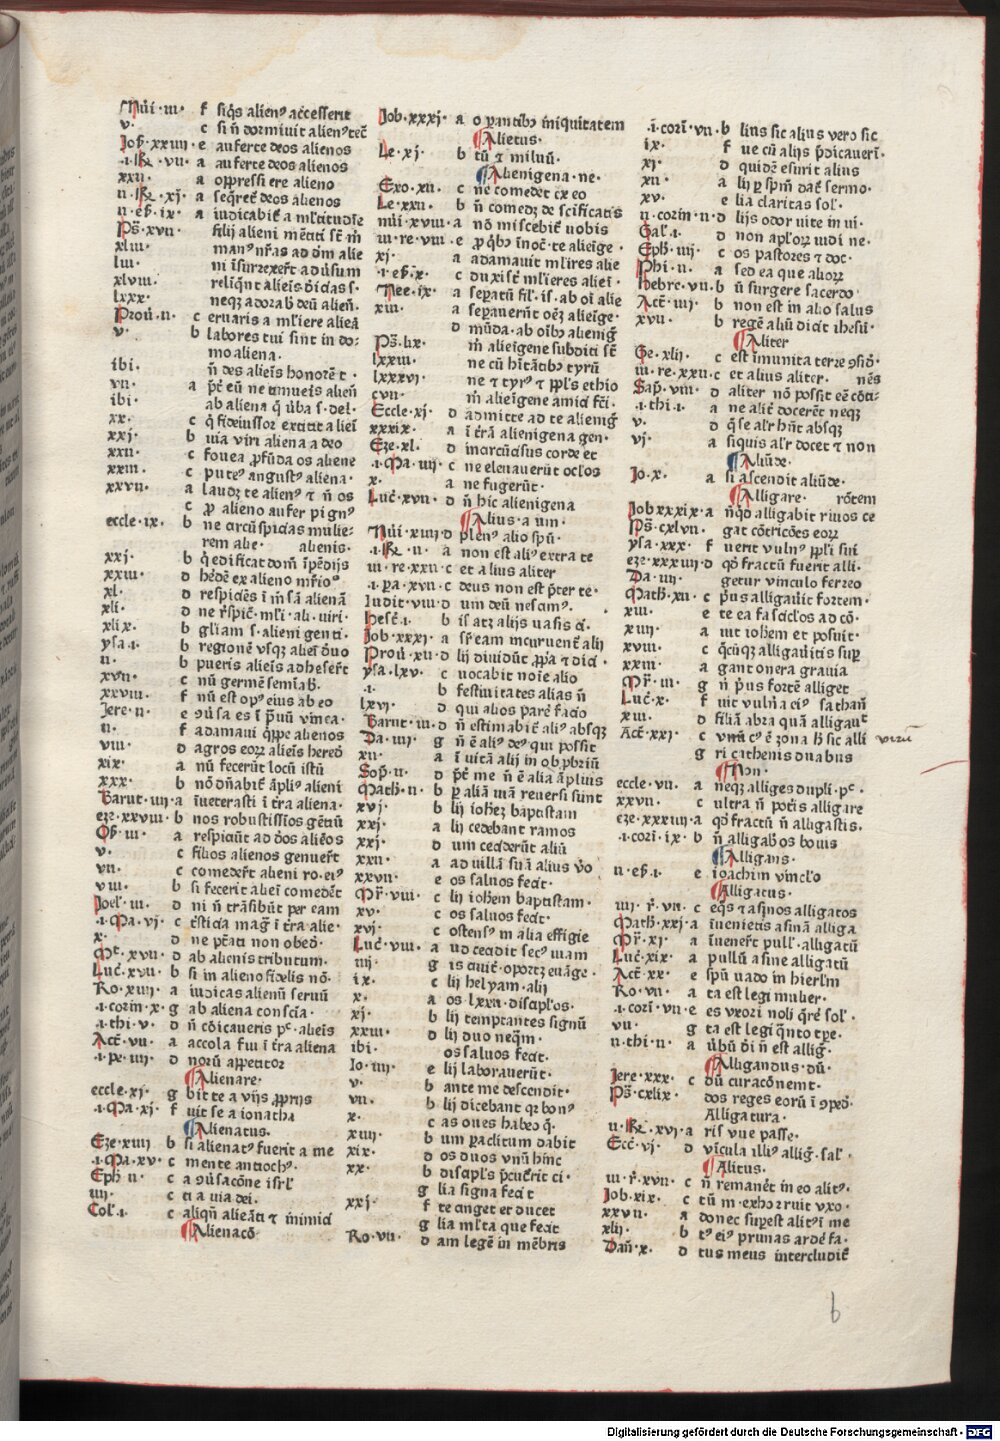 Nūi·iii· f siq̄s alienꝰ accesserit
v· c si n̄ dormiuit alienꝰ tec̄
Josꝭ·xxiiij· e auferte deos alienos
·i·Rꝭ·vii· a auferte deos alienos
xxii· a oppressi ere alieno
ii·Rꝭ·xj· a seqret̄ deos alienos
ii·esꝭ·ix· a iudicabit̄ a ml̄titudīe
Ps̄·xvii· filij alieni mētiti st̄ m̄
xliii· manꝰ nr̄as ad dm̄ alie
liii· ni ī surrexer̄t aduersum
xlviii· relīqn̄t alieīs diuitias s·
lxxx· neqꝫ adorab̄ deū alien̄·
Prou̇·ii· c eruaris a ml̄iere alieā
v· b labores tui sint in do⸗
mo aliena·
ibi· n̄ des alieīs honorē t·
vii· a p̄t eū ne inueīs alien̄
ibi· ab aliena q̄ v̄ba s· del·
xx· c q̄ fideiussor extitit alieī
xxij· b via viri aliena a deo
xxii· c fouea ꝓfūda os aliene
xxiii· c puteꝰ angustꝰ aliena·
xxvii· a laudꝫ te alienꝰ ⁊ n̄ os
c ꝓ alieno aufer pignꝰ
eccle·ix· b ne circūspicias mulie⸗
rem alie· alienis·
xxj· b q̇ edificat dom̄ ī pēdijs
xxiii· d hēde ex alieno mr̄ioꝰ
xl· d respiciēs ī m̄sā alienā
xli· d ne r̄spic̄· ml̄i·ali·viri·
xlix· b gl̄iam s·alieni genti·
ysa·i· b regionē vsqꝫ alieī dūo
ii· b pueris alieīs adheser̄t
xvii· c nū germē semīab̄·
xxviii· f nū est opꝰ eius ab eo
Jere·ii· e ꝯūsa es ī prauū vinea·
ii· f adamaui q̄ppe alienos
viii· d agros eoꝝ alieīs heredꝰ
xix· a nū fecerūt locū istū
xxx· b nō dn̄abit̄ āpli ̇alieni
Baruc·iiij· a īueterasti ī t̄ra aliena·
eze·xxviii· b nos robustissīos gētiū
Oſ·iii· a respiciūt ad dōs aliēos
v· c filios alienos genuer̄t
vii· c comeder̄t alieni ro·eiꝰ
viii· b si fecerit alieī comedēt
Joel·iii· d ni n̄ trāsibūt per eam
·i·Ma·vj· c tr̄sticia maḡ ī t̄ra alie·
x· d ne p̄tati non obed·
Mt̄·xvii· d ab alienis tributum·
Luc̄·xvii· b si in alieno fidelis nō·
Ro·xiiij· a iudicas alienū seruū
·i·corin·x· g ab aliena conscīa·
·i·thi·v· d n̄ cōicaueris pꝰc·alieīs
Act̄·vii· a accola fui ī t̄ra aliena
·i·pe·iiij· d norū appetitor
¶Alienare·
eccle·xj· g bit te a vijs ꝓprijs
·i·Ma·xj· f uit se a ionatha
¶Alienatus·
Eze·xiiij b si alienatꝰ fuerit a me
·i·Ma·xv· c mente antiochꝰ·
Eph ii· c a ꝯūsacōne isr̄l
iiij· c ti a via dei·
Col·i· c aliqn̄ alieāti ⁊ inimici
¶Alienacō
Job·xxxj· a o ꝑantibꝫ iniquitatem
¶Alietus·
Le·xj· b tū ⁊ miluū·
¶Alienigena·ne·
Exo·xii· c ne comedet ex eo
Le·xxii· b n̄ comedꝫ de scificatis
nūi·xviii· a nō miscebit̄ vobis
iii·re·viii· e ꝓ q̄bꝫ īnoc̄·te alieīge·
xj· a adamauit ml̄ires alie
·i·esꝭ·x· c duxist̄ ml̄ieres alieī·
Nee·ix· a separatū fil·is·ab oī alie
xiii· a separauerūt oēꝫ alieīge·
d mūda·ab oībꝫ alieniḡ
Ps̄·lix· m̄ alieīgene subditi st̄
lxxiii· ne cū hītātibꝫ tyrū
lxxxvj· ne ⁊ tyrꝰ ⁊ ppl̄s ethio
cvii· m̄ alieīgene amici fc̄i·
Eccle·xj· d admitte ad te alieniḡ
xxxix· a ī t̄rā alienigena gen·
Eze·xl· d incircūcisus corde et
·i·Ma·iiij· c ne eleuauerūt ocl̄os
x· a ne fugerūt·
Luc̄·xvii· d n̄ hic alienigena
¶Alius·a·um·
Nūi·xiiij d plenꝰ alio spū·
·i·Rꝭ·ii· a non est aliꝰ extra te
iii·re·xxii· c et alius aliter
·i·pa·xvii· c deus non est p̄ter te·
Iudit·viii· d um deū nesciimꝰ·
Hest̄·i· b is atꝫ alijs vasis ci·
Job·xxxj· a sr̄ eam incuruent̄ alij
Prou̇·xii· d lij diuidūt ꝓpa ⁊ dici·
ysa·lxv· c vocabit noīe alio
·i· b festiuitates alias n̄
lxvj· d qui alios paré facio
Baruc·iii· d n̄ estimabit̄ aliꝰ absqꝫ
Da·iiij· g n̄ ē aliꝰ deꝰ qui possit
xii· a ī vitā alij in obp̄briū
Sop̄·ii· d p̄t me n̄ ē alia āplius
Math̄·ii· b ꝑ aliā uiā reuersi sunt
xvj· b lij iohēꝫ baptistam
xxj· a lij cedebant ramos
xxj· d um ceciderūt aliū
xxii· a ad villā suā alius v̄o
xxvii· e os saluos fecit·
Mr̄·viii· c lij iohem baptistam·
xv· c os saluos fecit·
xvj· c ostensꝰ in alia effigie
Luc̄·viii· a ud cecidit secꝰ uiam
iiij· g is ciuit̄·oportꝫ euāge·
ix· c lij helyam·alij
x· a os lxxii·discipl̄os·
xj· b lij temptantes signū
xxiii· d lij duo neq̄m·
ibi· os saluos fecit·
Io·iiij· e lij laborauerūt·
v· b ante me descendit·
vii· b lij dicebant qꝫ bonꝰ
x· c as oues habeo q̄·
xiiij· b um paraclitum dabit
xix· d os duos vnū hinc
xx· b discipl̄s p̄cucrit ci·
g lia signa fecit
xxj· f te cinget et ducet
g lia ml̄ta que fecit
Ro·vii· d am legē in mēbris
·i·corī·vii· b lius sic alius vero sic
ix· f ue cū alijs p̄dicauerī·
xj· d quidē esurit alius
xii· a lij ꝑ spm̄ dat̄ sermo·
xv· e lia claritas sol·
ii·corin·ii· d lijs odor uite in ui·
Gal·i· d non apl̄oꝝ uidi ne·
Eph̄·iiij· c os pastores ⁊ doc·
Phi·ii· a sed ea que alioꝝ
Hebre·vii· b ū surgere sacerdo·
Act̄·iiij· b non est in alio salus
xvii· b regē aliū dicūt ihesū·
¶Aliter
Ge·xlij· c est īmunita terre ꝯsid·
iii·re·xxii· c et alius aliter· nēs
Sap̄·viii· d aliter nō possē eē cōti⸗
·i·thi·i· a ne alit̄ docerēt neqꝫ
v· d q̄ se al̄r hn̄t absqꝫ
vj· a siquis al̄r docet ⁊ non
¶Aliūde·
Jo·x· a si ascendit aliūde·
¶Alligare· rōtem
Job xxxix· a nūqd alligabit riuos ce
Ps̄·cxlvii· gat cōtricōes eoꝝ
ysa·xxx· f uerit vulnꝰ ppl̄i sui
eze·xxxiiij· d qd̄ fractū fuerit alli·
Da·iiij· getur vinculo ferreo
Math̄·xii· c p̄us alligauit fortem·
xiii· e te ea fasciclos ad cō·
xiiij· a uit iohem et posuit·
xviii· c q̄cūqꝫ alligauitis suꝑ
xxiii· a gant onera grauia
Mr̄·iii· g n̄ p̄us fortē alliget
Luc̄·x· f uit vulnꝰa eiꝰ sathan̄
xiii· d filiā abra quā alligauit̄
Act̄·xxj· c virū cꝰ ē zona h̄ sic alli virū
g ri cathenis duabus
¶Non·
eccle·vii· a neqꝫ alliges dupli·pc̄·
xxvii· c ultra n̄ pot̄is alligare
eze·xxxiiij· a qd̄ fractū n̄ alligastis·
·i·corī·ix· b n̄ alligabīs os bouis
¶Alligans·
ii·esꝭ·i· e ioachim vinclo
¶Alligatus·
iiij·r̄·vii· c eqꝰs ⁊ asinos alligatos
Math̄·xxj· a īuenietis asinā alliga
Mr̄·xj· a īuener̄t pull·alligatū
Luc̄·xix· a pullū asine alligatū
Act̄·xx· e spū uado in hierl̄m
Ro·vii· a ta est legi mulier·
·i·corī·vii· e es vxori noli q̄rē sol·
vii· g ta est legi q̄nto tpe·
ii·thi·ii· a v̄bū dī n̄ est alliḡ·
¶Alligandus·dū·
Jere·xxx· c dū curacōnemt·
Ps̄·cxlix· dos reges eorū ī ꝯped·
Alligatura·
ii·Rꝭ·xvj· a ris vue passe·
Ecc̄·vj· d vīcula illiꝰ alliḡ·sal·
¶Alitus·
iii·r̄·xvii· c n̄ remanēt in eo alitꝰ·
Job·xix· c tū m·exhorruit vxo·
xxvii· a donec suꝑest alitꝰ ī me
xlij· b tꝰ eiꝰ prunas ardē fa·
Dan̄·x· d tus meus intercludit̄
b
Digitalisierung gefördert durch die Deutsche Forschungsgemeinschaft · DFG